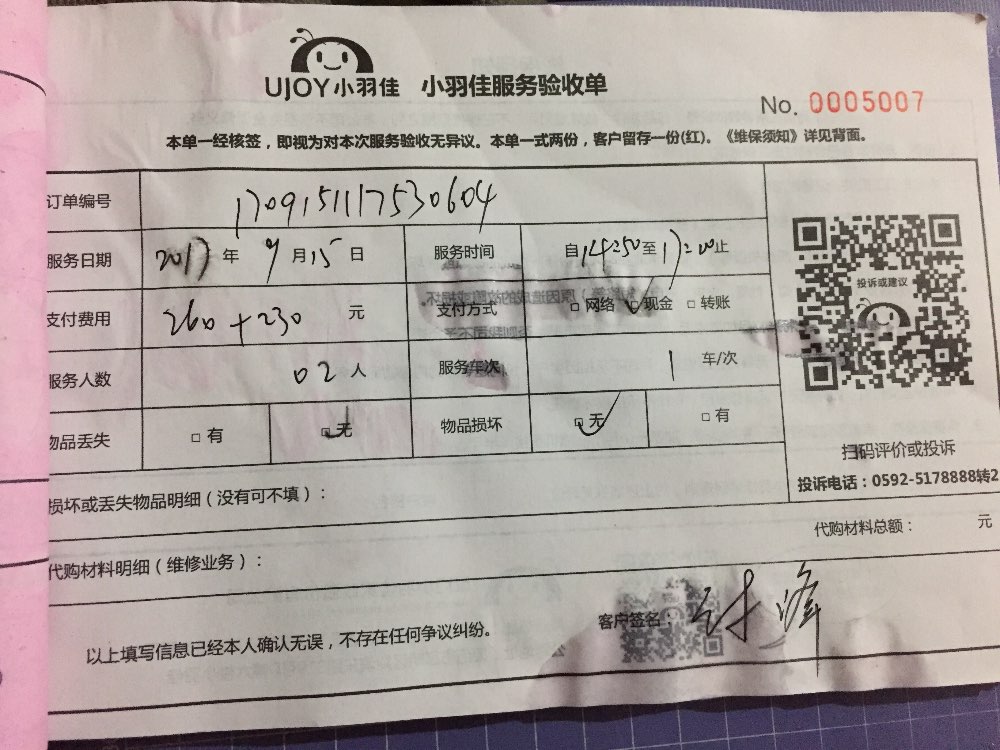 UJOY小羽佳 小羽佳服务验收单
No. 0005007
本单一经核签，即视为对本次服务验收无异议。本单一式两份，客户留存一份(红)。《维保须知》详见背面。
订单编号 1709151117530604
服务日期 2017年9月15日 服务时间 自14:50至17:00止
支付费用 260+230 元 支付方式 □网络 □现金 □转账
服务人数 02人 服务车次 1 车/次
物品丢失 □有 □无 物品损坏 □无 □有
投诉或建议
扫码评价或投诉
投诉电话：0592-5178888转2
损坏或丢失物品明细（没有可不填）：
代购材料总额： 元
代购材料明细（维修业务）：
以上填写信息已经本人确认无误，不存在任何争议纠纷。
客户签名：